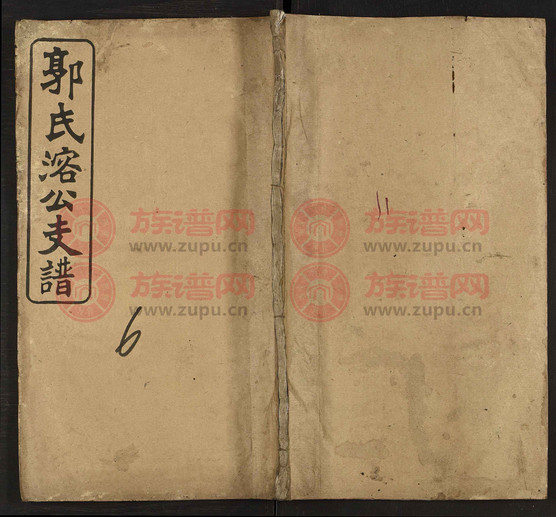 郭氏溶公支譜
6
族谱网
www.zupu.cn
族谱网
www.zupu.cn
族谱网
www.zupu.cn
族谱网
www.zupu.cn